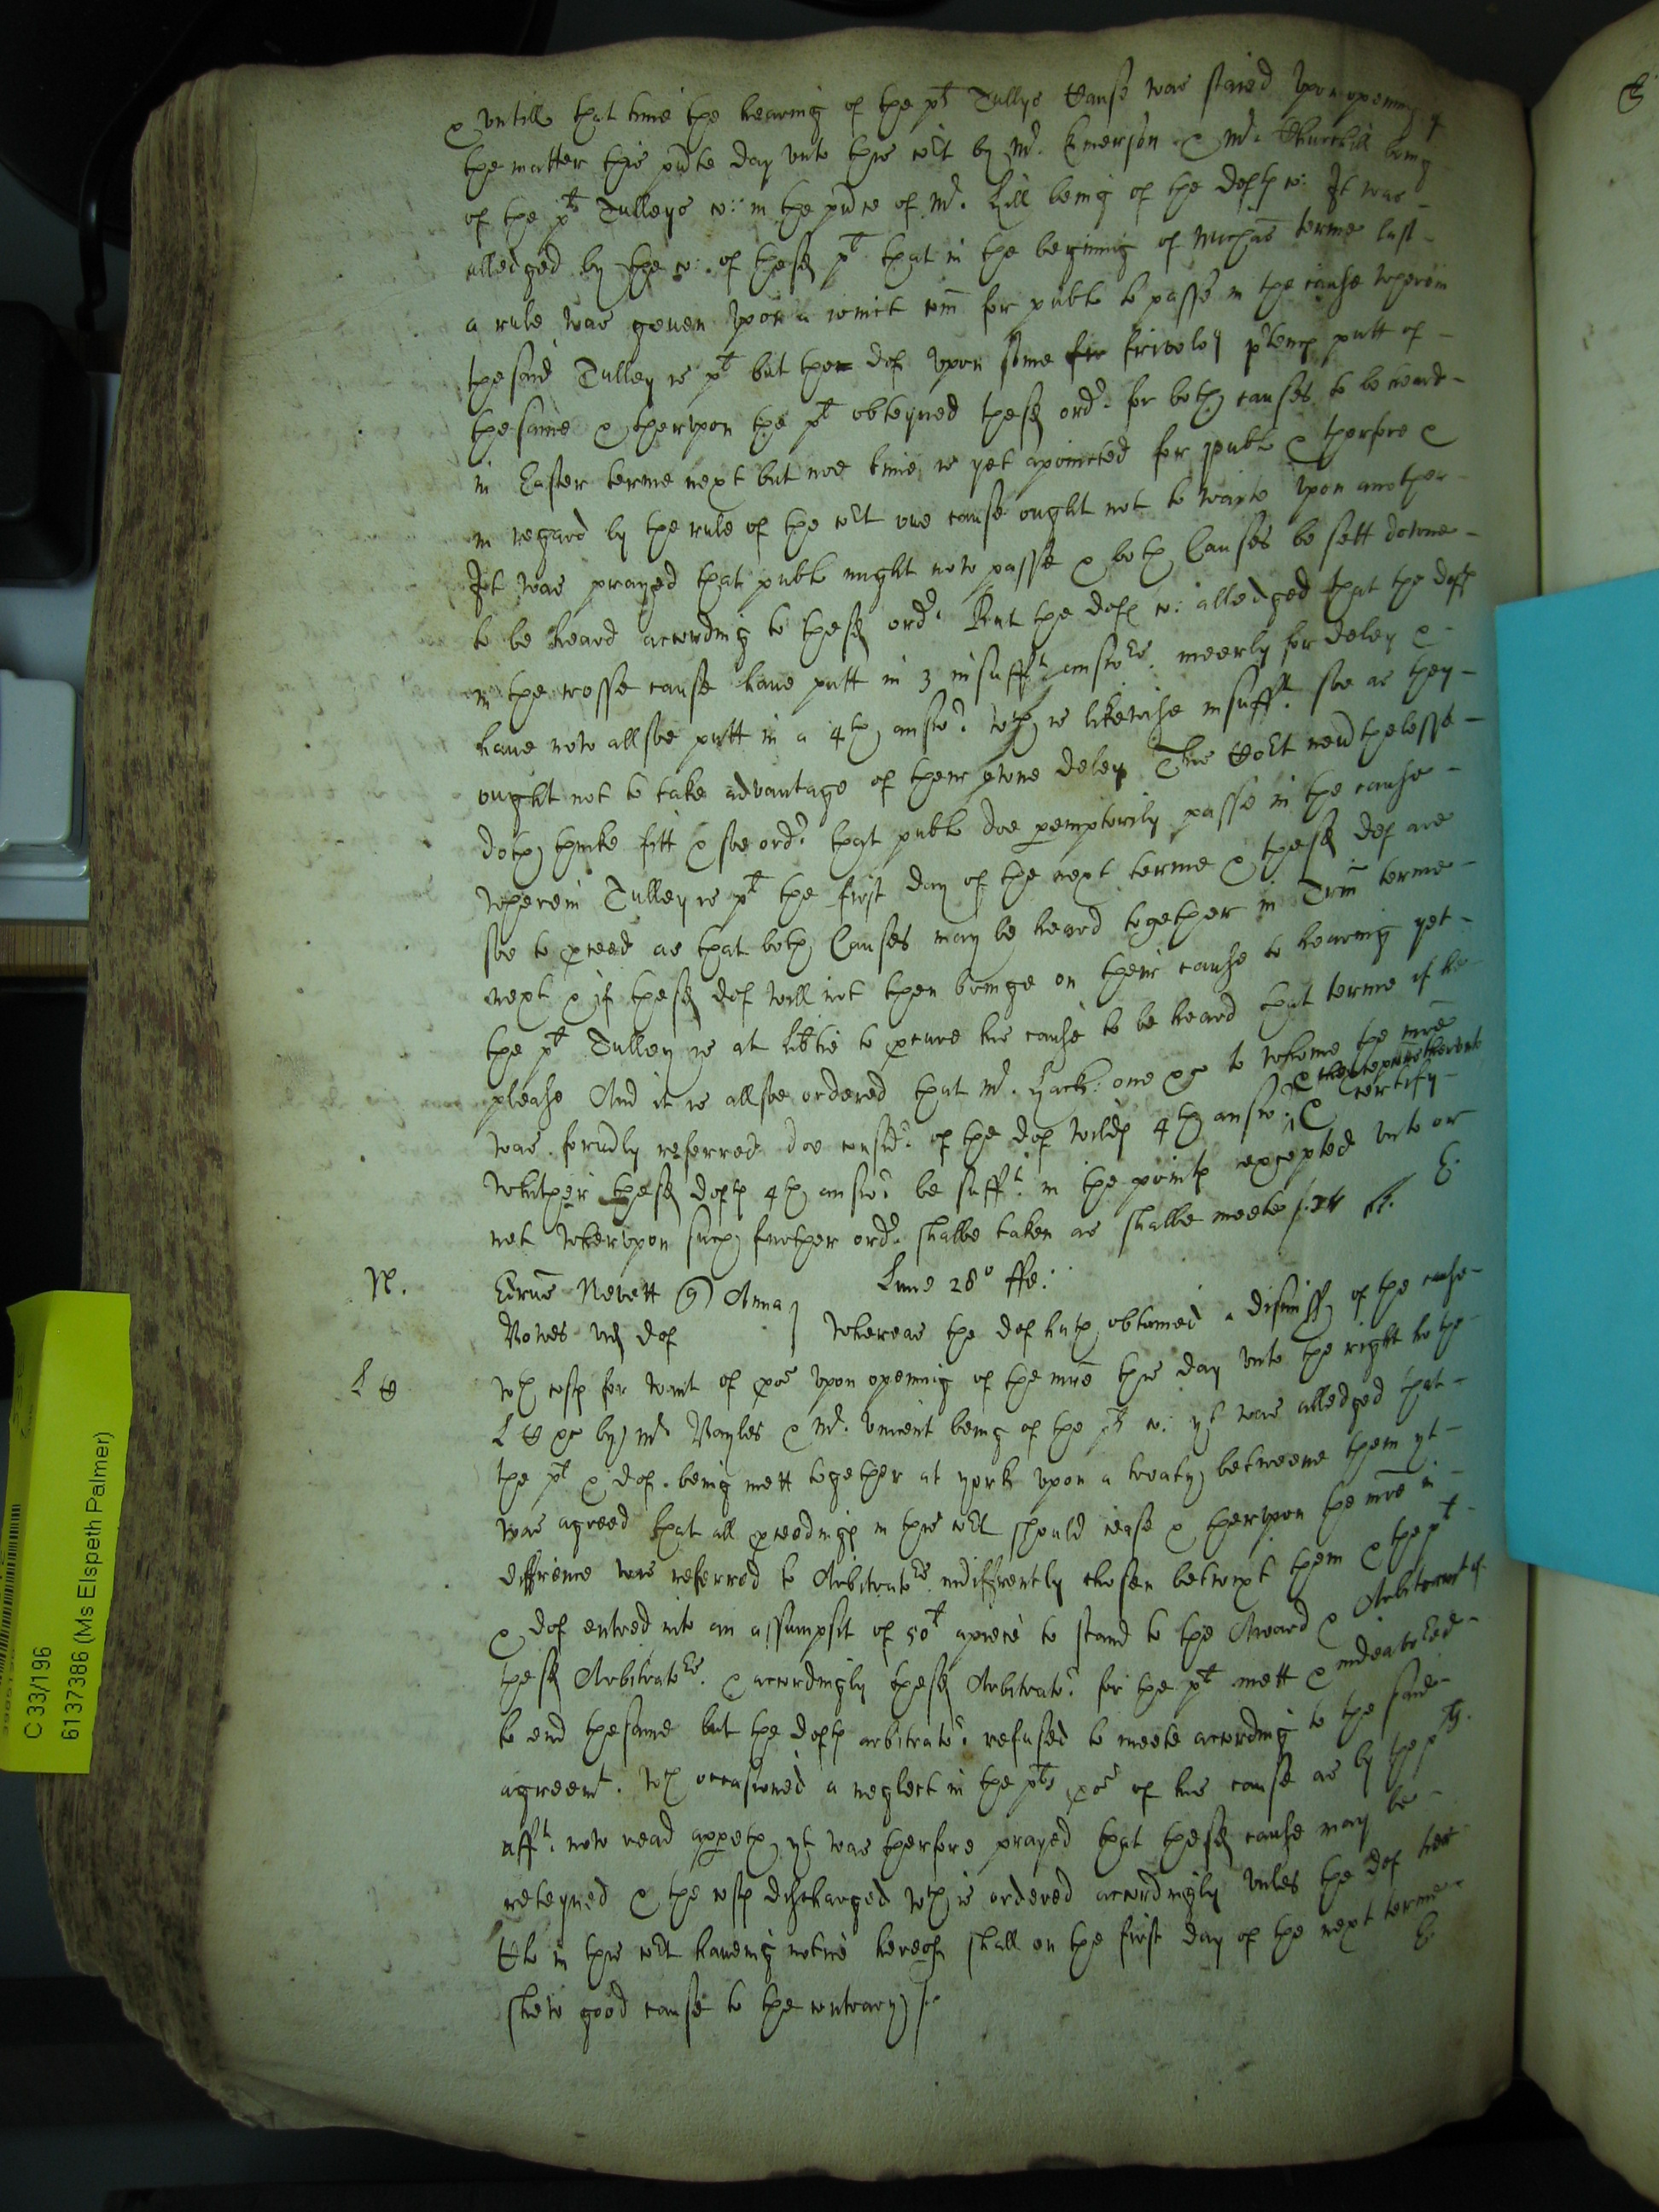 & untill that time the hearing of the plt Tullys Cause was staied Upon opening of
the matter this pnte day unto this Cort by Mr. Emerson & Mr. Churchill being
of the plts Tulleys co: in the pnce of Mr. Hill being of the defts co: It was
alledged by the co: of the sd plt that in the begining of Michas terme last
a rule was geuen upon a comit com for publ to passe in the cause wherein
the said Tulley is plt but the def upon some frivolous ptence putt of
the same & therupon the plt obteyned the sd ordr. for both causes to be heard
in Easter terme next but noe time is yet apointed for publ & therfore &
in regard by the rule of the Cort one cause ought not to waite upon another
It was prayed that publ might now passe & both Causes be sett downe
to be heard according to the sd ordr. But the def co: alledged that the defts
in the crosse cause haue putt in 3 insufft answrs. meerly for delay &
haue now allsoe putt in a 4th answr wch is likewise insufft. soe as they
ought not to take advantage of their owne delay This Cort neuthelesse
doth thinke fitt & soe ordr. that publ doe pemptorily passe in the cause
wherein Tulley is plt the first day of the next terme & the sd def are
soe to pceed as that both Causes may be heard together in Trin terme
next & if the sd def will not then bringe on their cause to hearing yet
the plt Tulley is at libtie to pcure his cause to be heard that terme if he
please And it is allsoe ordered that Mr. Hack: one &c to whome the mre
was formly referred doe considr of the def 4th answr. & certify
whither the sd defts 4th answr be sufft. in the points excepted unto or
not wherupon such further ordr. shalbe taken as shalbe meete
N. Edrus Nevett Anna Lune 28o ffe:
Vowes vid def Whereas the def hath obtained a dismiss of the cause
L C wth costs for want of pos Upon opening of the mre this day unto the right ho the
L C &c by Mr Vayles & Mr. Vincent being of the plts co: yt was alledged that
the plt & def. being mett together at york upon a treaty betweene them yt
was agreed that all pceedings in this Cort should cease & therupon the mre in
diffrence was referred to Arbitrators. indiffrently chosen betwixt them & the plt
& def entred into an assumpsit of 50l apiece to stand to the Award & Arbitramt of
the sd Arbitrators. & accordingly the sd Arbitrators for the plt mett & indeavored
to end the same but the defts arbitrators refused to meete according to the said
agreemt. wch occasioned a neglect in the plts pos of his cause as by the plts
afft. now read appeth yt was therfore prayed that the sd cause may be
reteyned & the costs discharged wch is ordered accordingly unles the def her
Cle in this Cort haueing notice hereof shall on the first day of the next terme
shew good cause to the contrary
C 33/196
6137386 (Ms Elspeth Palmer)